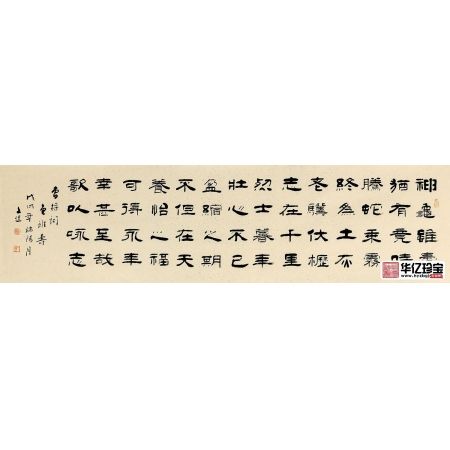 神龜雖壽
猶有竟時
騰蛇乘霧
終為土灰
老驥伏櫪
志在千里
烈士暮年
壯心不已
盈縮之期
不但在天
養怡之福
可得永年
幸甚至哉
歌以咏志
曹操詞
龜雖壽
戊戌年端陽月
华亿珍宝